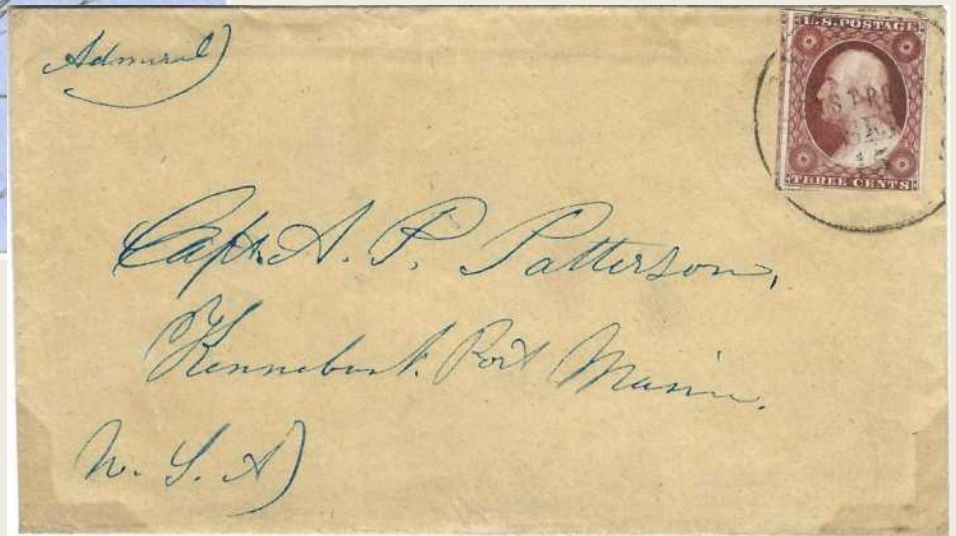 Admiral)
U.S. POSTAGE
THREE CENTS
15
Capt. A. P. Patterson,
Kennebunk. Port Maine.
U. S. A)